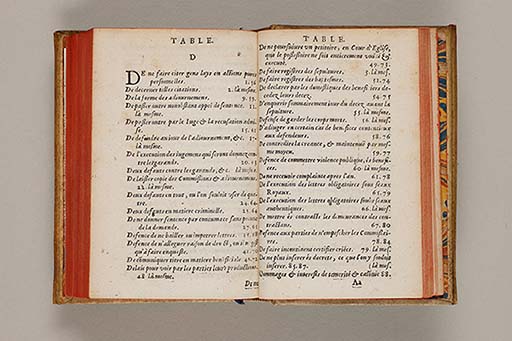 TABLE.
D
DE ne faire citer gens lays en actions pures
personelles. 1.
De decerner telles citations. 2. là mesme.
De la forme des adiournemens. 9.
De passer outre nonobstant appel de
là mesme.
De passer outre par le Iuge & la recusation
se. 15.
De deffendre au iour de l'adiournement, &c.
là mesme.
De l'execution des iugemens qui seront donnez
tre les grands. 20.
Deux defauts contre les grands, &c. là
De laisser copie des Commissions & adiournemens
22. là mesme.
Deux defauts en tout, ou l'on souloit vser de
tre. 24.
Deux defauts en matiere criminelle. 25.
De ne donner sentence par contumace sans
de la demande. 27.
Defence de ne bailler, ou impetrer lettres.
Defence de n'alleguer raison de
qu'à faire enqueste.
De communiquer titre en matiere beneficiale.
Delais pour voir par les parties leurs productions.
48 là mesme.
De ne
TABLE.
De ne poursuiure vn petitoire, en Cour d'Eglise,
que le possessoire ne soit entierement vuidé &
executé. 49.73.
De faire registres des sepultures. 5. là mes.
De faire registres des baptesmes. 51.74
De declarer par les domestiques des beneficiers
cedez leurs decez. 54.75
D'enquerir sommairement iour du decez, auant la
sepulture. 55. là mesme.
Defense de garder les corps morts. 56 là mes.
D'adiuger en certain cas des benefices contentieux
aux defendeurs. 58.76
De contredire la creance, & maintenuë par
me moyen. 59.77
Defence de commettre violence publique, és benefi-
ces. 60 là mesme.
De ne receuoir complainte apres l'an. 61.78
De l'execution des lettres obligatoires sous seaux
Royaux. 65.79
De l'execution des lettres obligatoires sous seaux
authentiques. 66. là mes.
De mettre és contracts les demeurances des con-
tractans. 67.80
Defence aux parties de n'empescher les Commissai-
res. 78.84
De faire incontinent certifier criées. 79. là mes.
De ne plus inserer és decrets, ce que l'on y souloit
inserer. 85.87. là mes.
Dommages & interests de temerité &
88.
Aa